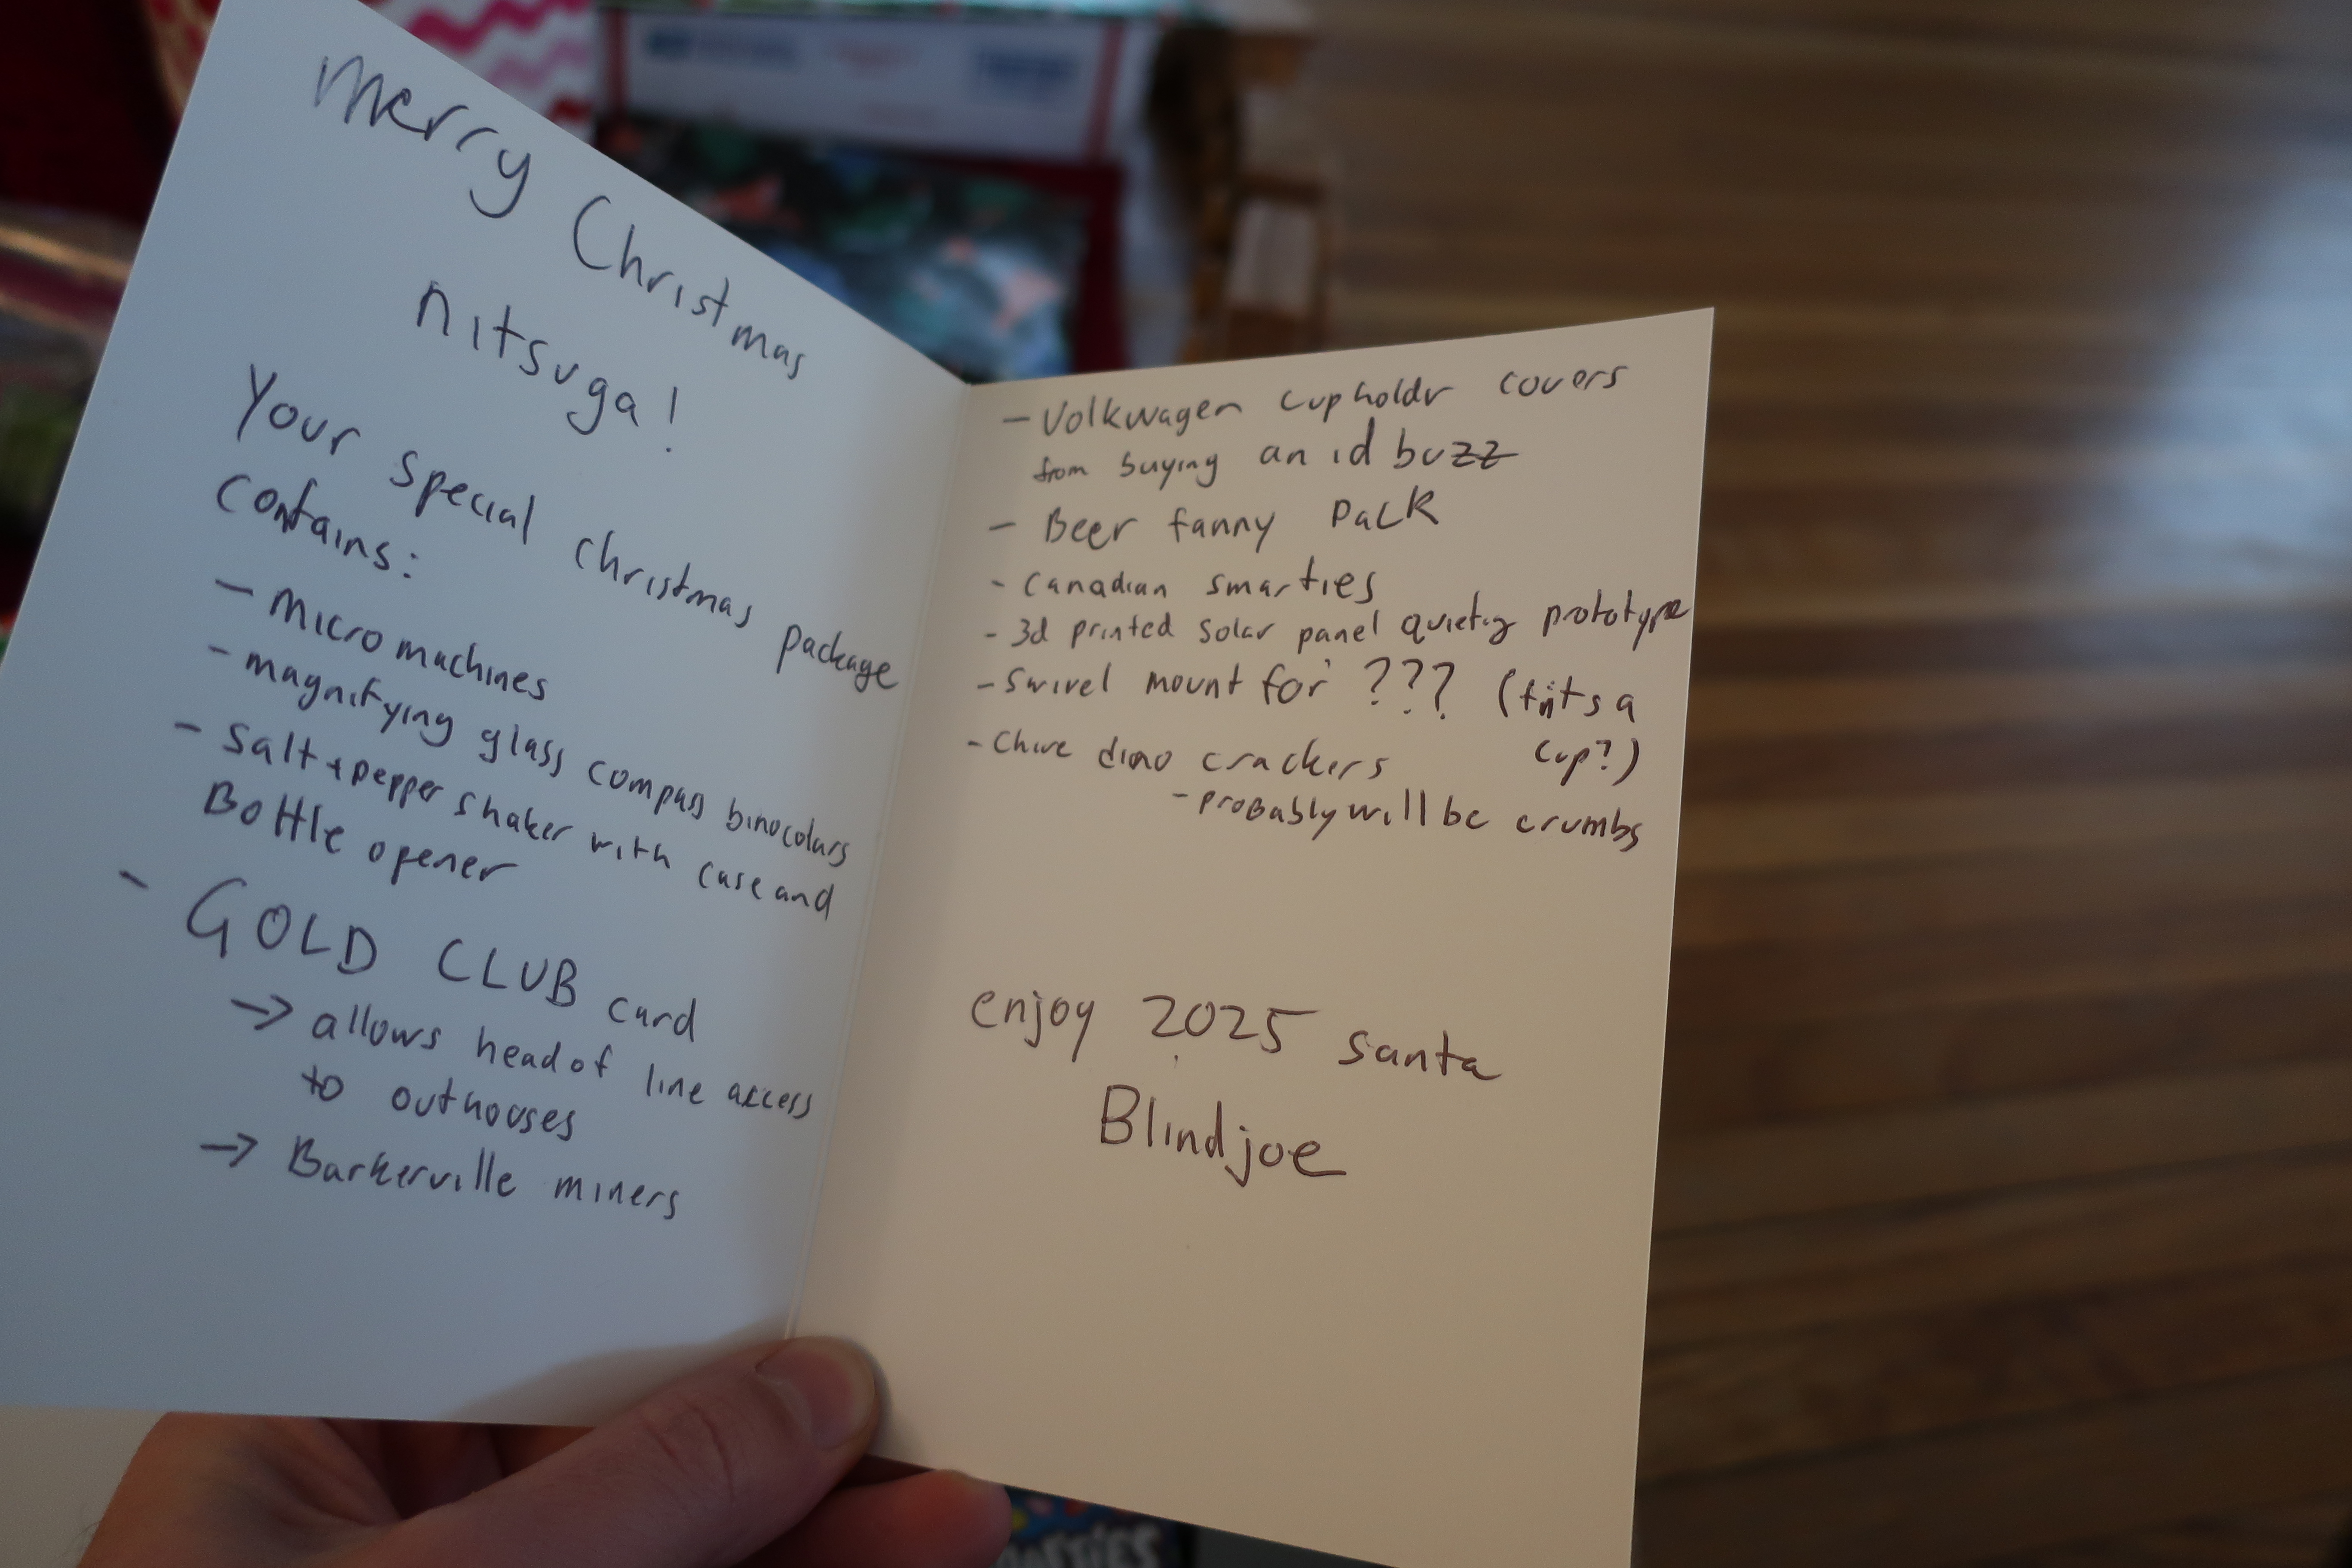 Merry Christmas
nitsuga!
Your special christmas package
contains:
- micro machines
- magnifying glass compass binocolars
- salt + pepper shaker with case and
Bottle opener
- GOLD CLUB card
→ allows head of line access
to outhouses
→ Barkerville miners
- Volkwagen cupholdr covers
from buying an id buzz
- Beer fanny pack
- Canadian smarties
- 3d printed solar panel prototype
- Swivel mount for ??? (fits a
cup?)
- Chive dino crackers
- probably will be crumbs
enjoy 2025 santa
Blindjoe